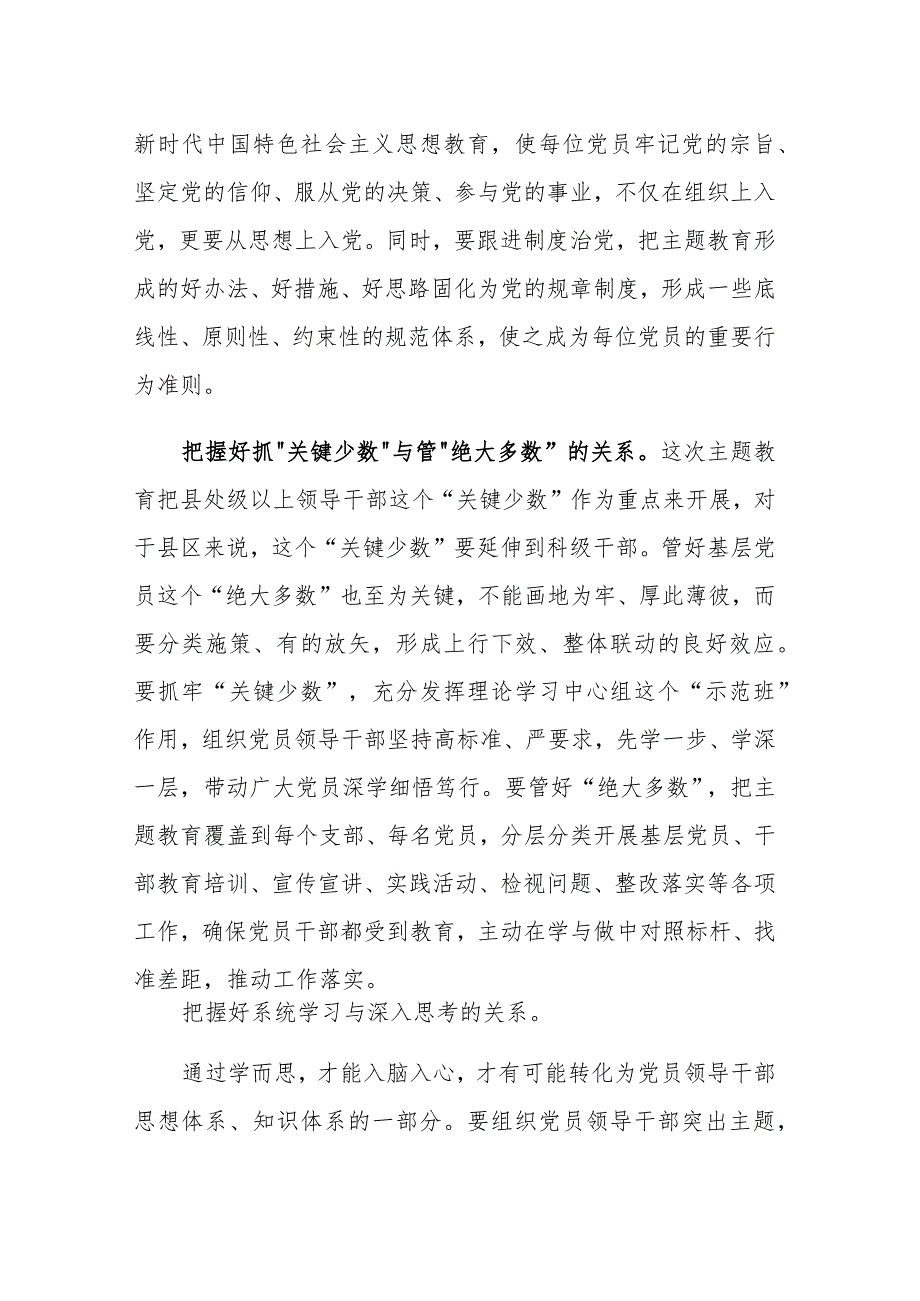 新时代中国特色社会主义思想教育，使每位党员牢记党的宗旨、
坚定党的信仰、服从党的决策、参与党的事业，不仅在组织上入
党，更要从思想上入党。同时，要跟进制度治党，把主题教育形
成的好办法、好措施、好思路固化为党的规章制度，形成一些底
线性、原则性、约束性的规范体系，使之成为每位党员的重要行
为准则。
把握好抓"关键少数"与管"绝大多数”的关系。这次主题教
育把县处级以上领导干部这个“关键少数”作为重点来开展，对
于县区来说，这个“关键少数”要延伸到科级干部。管好基层党
员这个“绝大多数”也至为关键，不能画地为牢、厚此薄彼，而
要分类施策、有的放矢，形成上行下效、整体联动的良好效应。
要抓牢“关键少数”，充分发挥理论学习中心组这个“示范班”
作用，组织党员领导干部坚持高标准、严要求，先学一步、学深
一层，带动广大党员深学细悟笃行。要管好“绝大多数”，把主
题教育覆盖到每个支部、每名党员，分层分类开展基层党员、干
部教育培训、宣传宣讲、实践活动、检视问题、整改落实等各项
工作，确保党员干部都受到教育，主动在学与做中对照标杆、找
准差距，推动工作落实。
把握好系统学习与深入思考的关系。
通过学而思，才能入脑入心，才有可能转化为党员领导干部
思想体系、知识体系的一部分。要组织党员领导干部突出主题，